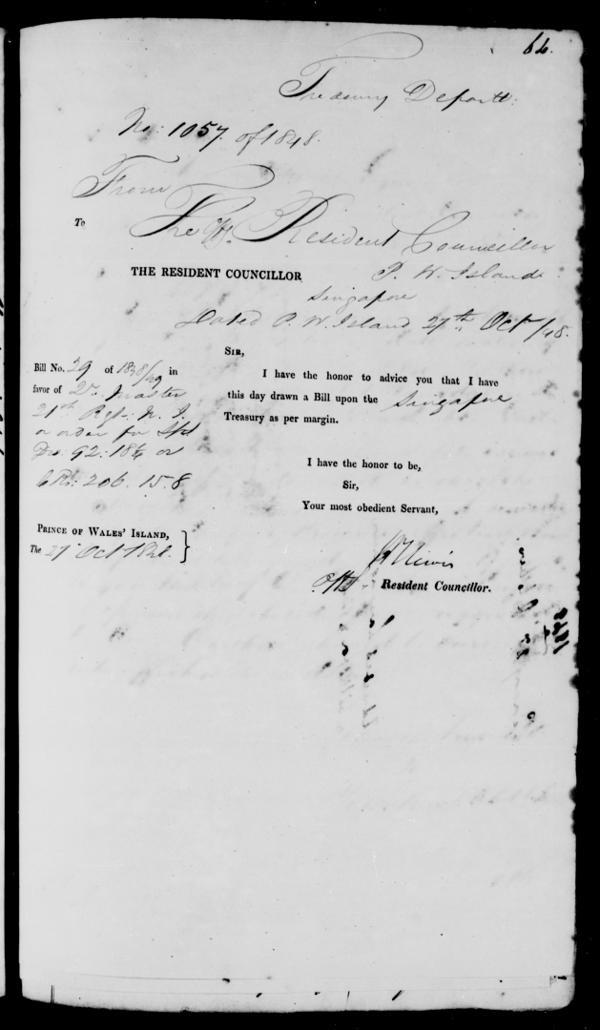 64.
Treasury Departt:
No: 1057 of 1848.
From
The Resident Councillor
P. W. Island
To
THE RESIDENT COUNCILLOR
Singapore
Dated P. W. Island 27th Oct /48.
Bill No. 29 of 1848/49 in
favor of Qr. Master
21st Regt. N. I.
or order for Spd
Drs. 92: 18¾ or
CRs: 206. 15. 8
SIR,
I have the honor to advice you that I have
this day drawn a Bill upon the Singapore
Treasury as per margin.
I have the honor to be,
Sir,
Your most obedient Servant,
PRINCE OF WALES' ISLAND,
The 27 Oct 1848.
Lewis
Resident Councillor.